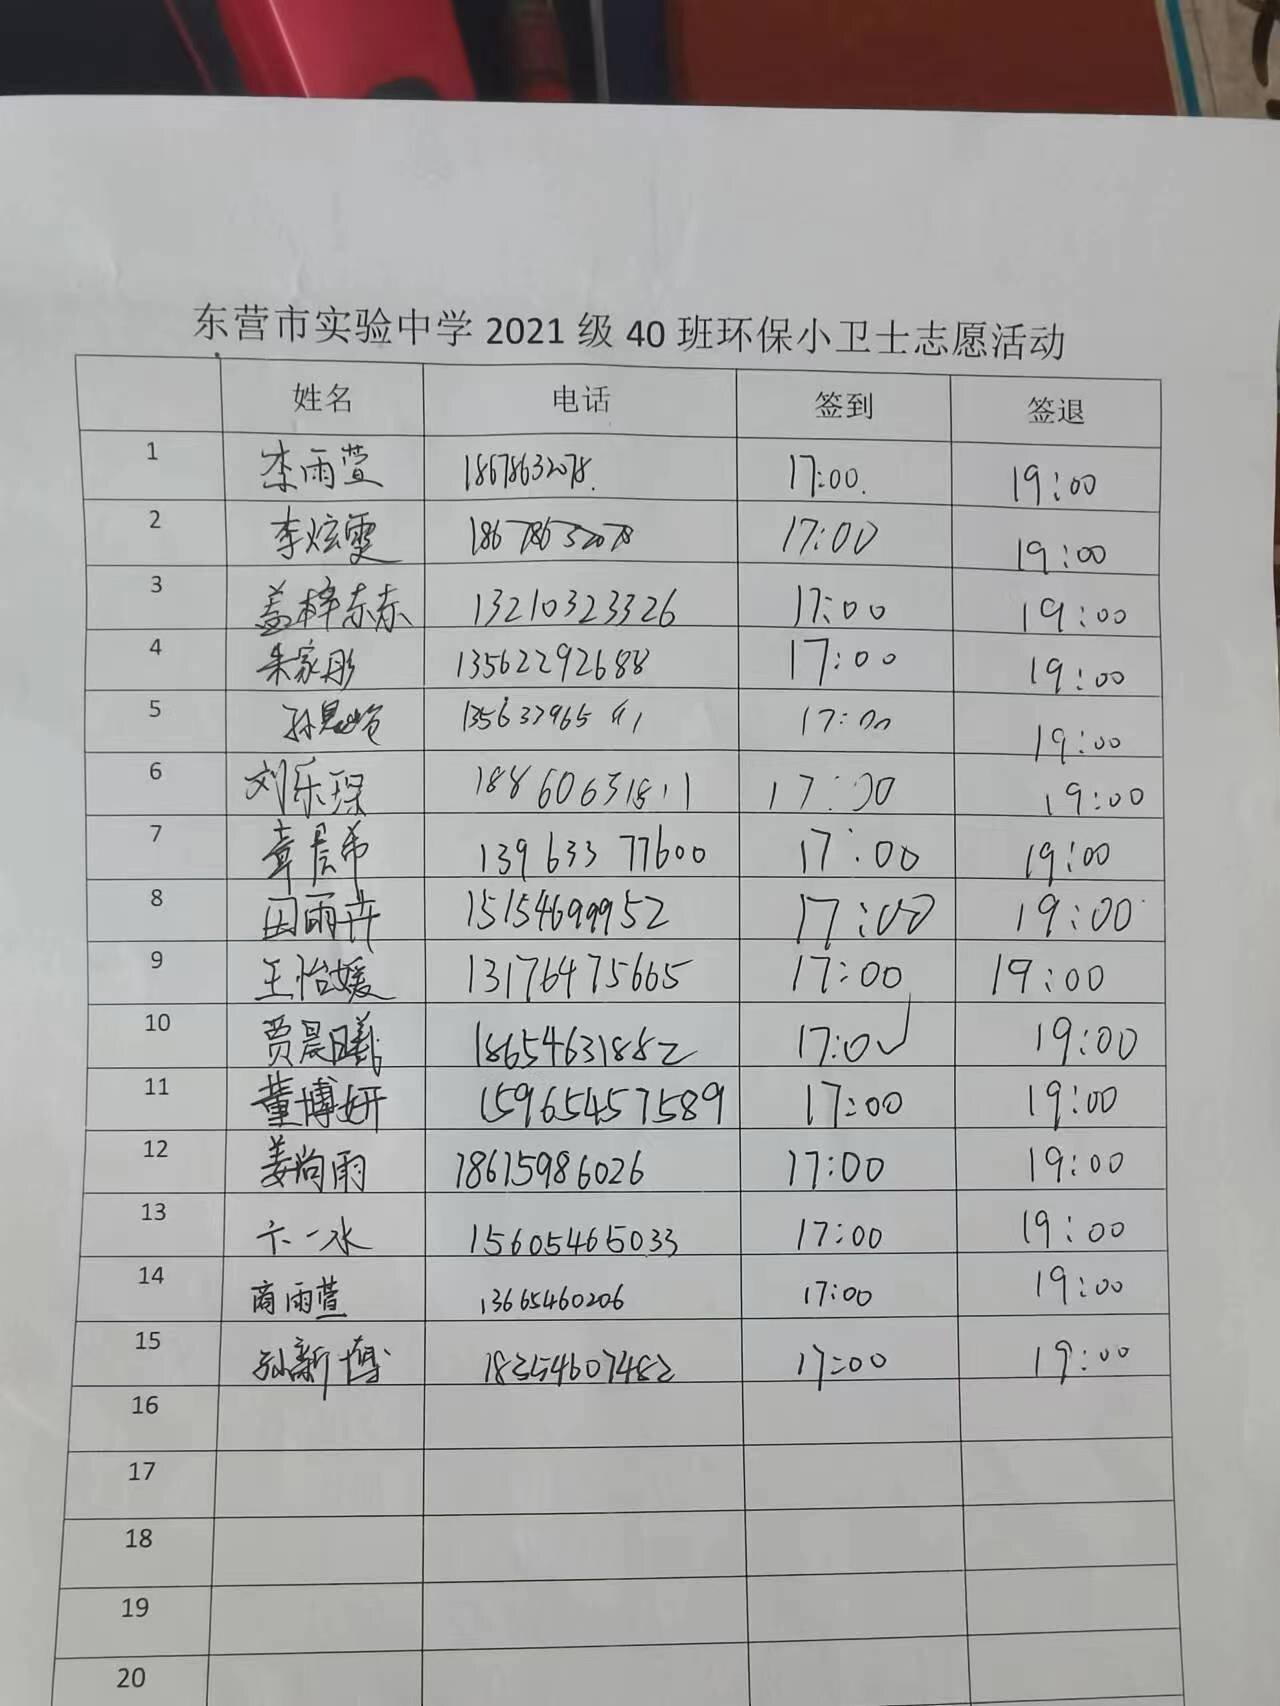 东营市实验中学 2021 级 40 班环保小卫士志愿活动
姓名 电话 签到 签退
1 李雨萱 18678632078. 17:00. 19:00
2 李炫雯 18678632078 17:00 19:00
3 盖梓东东 13210323326 17:00 19:00
4 朱家彤 13562292688 17:00 19:00
5 17:00 19:00
6 刘乐琛 18860631811 17:00 19:00
7 章晨希 13963377600 17:00 19:00
8 田雨卉 15154699952 17:00 19:00
9 王怡媛 13176475665 17:00 19:00
10 贾晨曦 18654631882 17:00 19:00
11 董博妍 15965457589 17:00 19:00
12 姜尚雨 18615986026 17:00 19:00
13 卞一冰 15605465033 17:00 19:00
14 商雨萱 13665460206 17:00 19:00
15 孙新博 18354607482 17:00 19:00
16
17
18
19
20